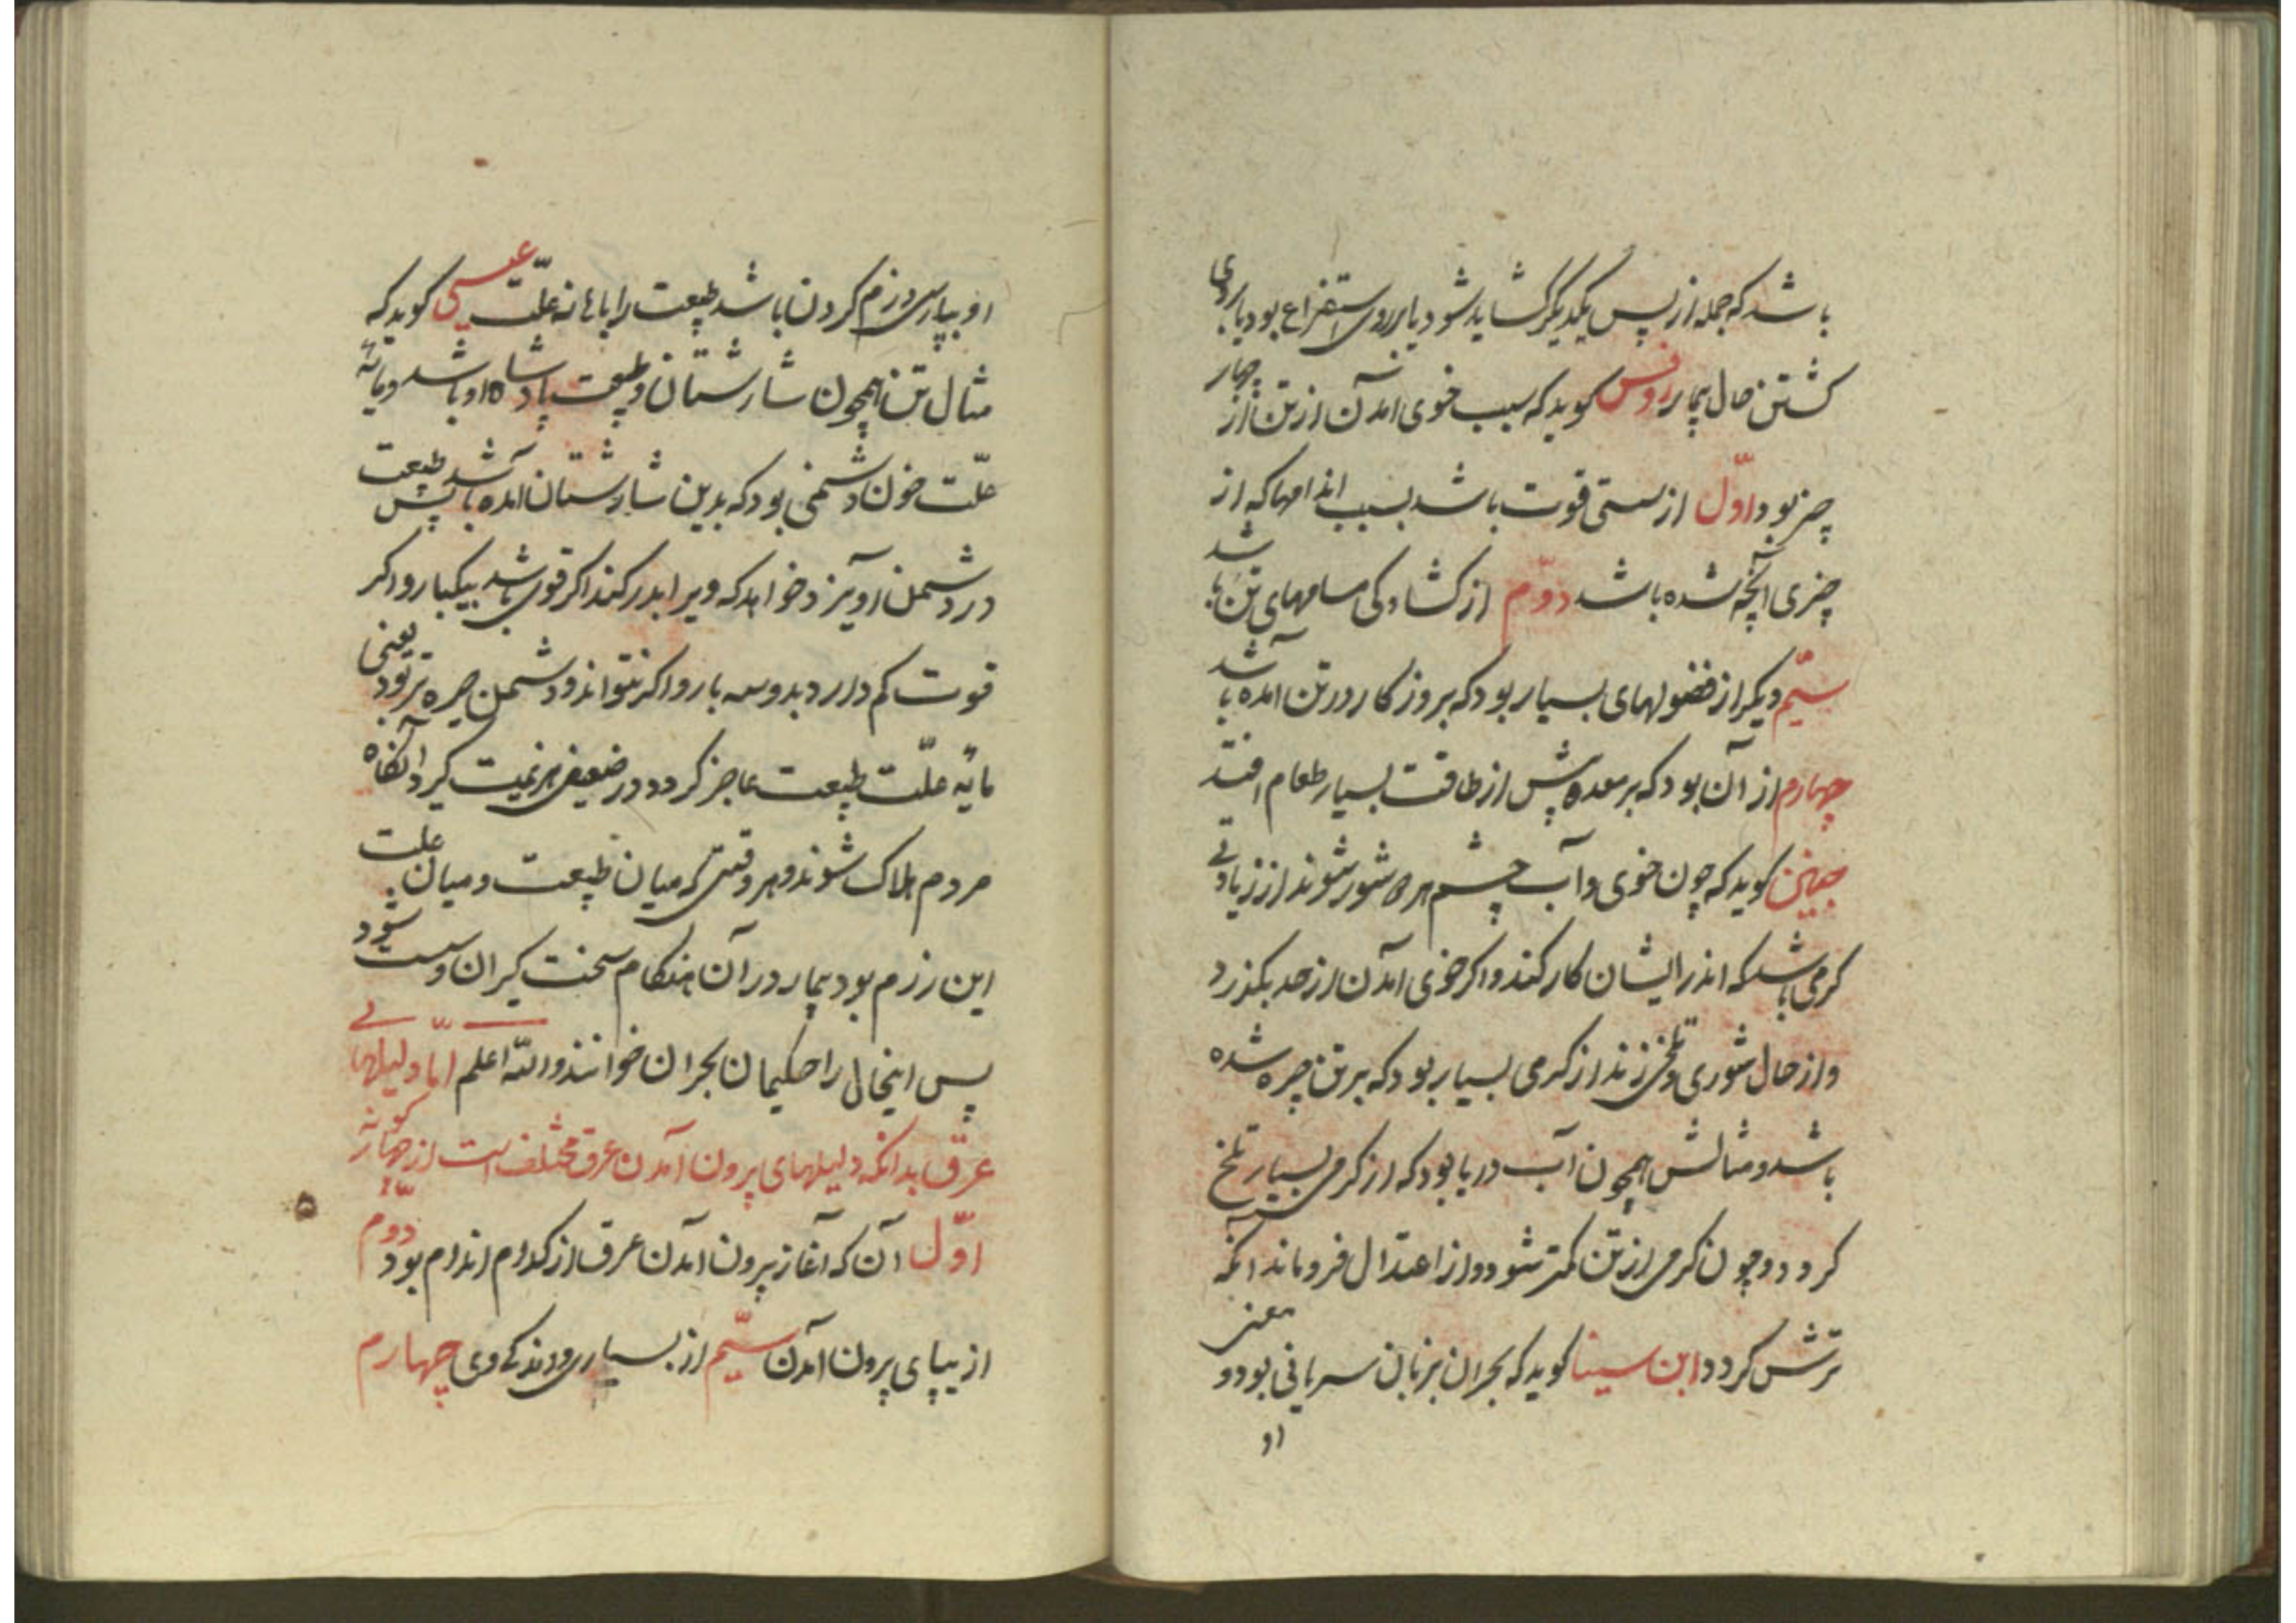 باشد که جمله از پس یکدیگر کشاید شود یا بر روی استفراغ بود یا بر روی
کشتن حال بیمار روفس کوید که سبب خوی امدن از تن از چهار
چیز بود اوّل از سستی قوت باشد بسبب اندامها که از
چیزی انچه شده باشد دوّم از کشادکی مسامهای تن باشد
سیّم دیکر از فضولهای بسیار بود که بروزکار در تن امده باشد
چهارم از آن بود که بر معده پیش از طاقت بسیار طعام افتد
کوید که چون خوی و آب چشم هر شور شوند از زیادتی
کرمی باشد که اندر ایشان کار کند و اکر خوی امدن از حد بکذرد
و از حال شوری و تلخی زند از کرمی بسیار بود که بر تن چیره شده
باشد و مثالش همچون آب دریا بود که از کرمی بسیار تلخ
کردد و چون کرمی از تن کمتر شود و از اعتدال فرو ماند آنکه
ترش کردد ابن سینا کوید که بحران بزبان سریانی بود و معنی
او
او بپارسی رزم کردن باشد طبیعت را با مانه علّت عیسی کوید که
مثال تن همچون شارستان و طبیعت پادشاه او باشد و مایهٔ
علّت چون دشمنی بود که بدین شارستان امده باشد پس طبیعت
در دشمن آویزد و خواهد که ویرا بدر کند اکر قوی باشد بیکبار و اکر
قوت کم دارد بدو سه بار و اکر نتواند و دشمن چیره تر بود یعنی
مایهٔ علّت طبیعت عاجز کردد و در ضعیفی هزیمت کیرد آنکاه
مردم هلاک شوند و هر وقتی که میان طبیعت و میان علت
این رزم بود بیمار در آن هنکام سخت کران و سست شود
پس اینحال را حکیمان بحران خوانند والله اعلم امّا دلیلهای
عرق بدانکه دلیلهای بیرون آمدن عرق مختلف است از چهار کونه
اوّل آن که آغاز بیرون امدن عرق از کدام اندام بود دوم
از بیپای بیرون امدن سیّم از بسیاری و اندکی وی چهارم